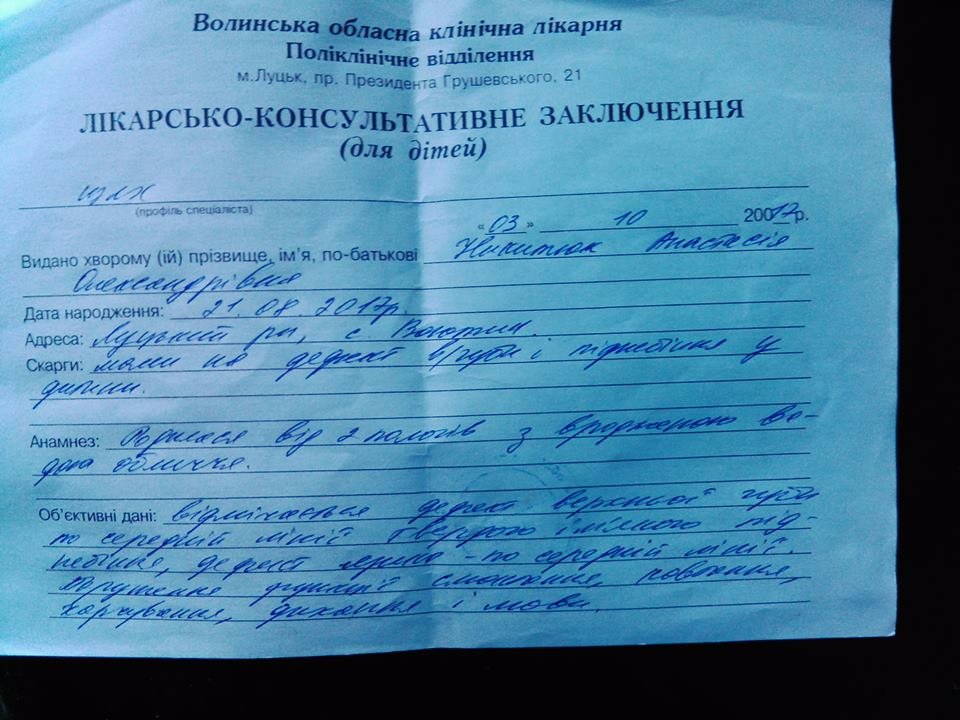 Волинська обласна клінічна лікарня
Поліклінічне відділення
м.Луцьк, пр. Президента Грушевського, 21
ЛІКАРСЬКО-КОНСУЛЬТАТИВНЕ ЗАКЛЮЧЕННЯ
(для дітей)
щлх
(профіль спеціаліста)
«03» 10 20017р.
Видано хворому (ій) прізвище, ім'я, по-батькові Никитюк Анастасія
Олександрівна
Дата народження: 21.08.2017р.
Адреса: Луцький р-н, с.
Скарги: мами на дефект в/губи і піднебіння у
дитини.
Анамнез: Родилася від 2 пологів з вродженою ва-
дою обличчя.
Об'єктивні дані: відмічається дефект верхньої губи
по середній лінії твердого і мякого під-
небіння, дефект - по середній лінії.
Порушення функції смоктання, ковтання,
харчування, дихання і мови.